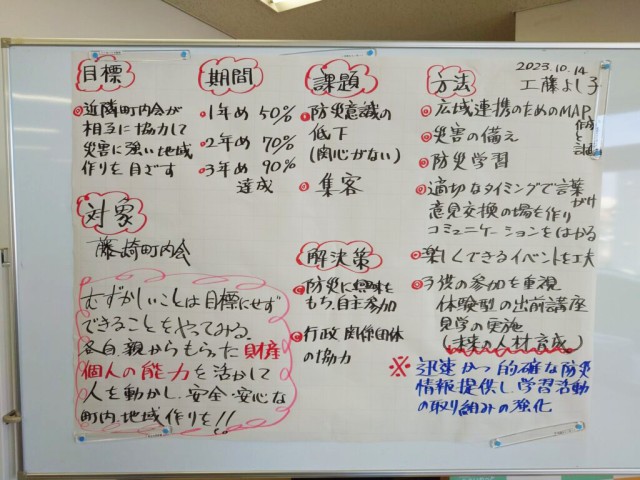 2023.10.14
工藤よし子
目標
◎近隣町内会が
相互に協力して
災害に強い地域
作りを目ざす
期間
◦1年め 50%
◦2年め 70%
◦3年め 90%
達成
課題
◎防災意識の
低下
(関心がない)
◎集客
方法
◎広域連携のためのMAP
作成と
◎災害の備え
◎防災学習
◎適切なタイミングで言葉
がけ
意見交換の場を作り
コミュニケーションをはかる
◎楽しくできるイベントを工夫
◎子供の参加を重視
体験型の出前講座
見学の実施
(未来の人材育成)
対象
藤崎町内会
解決策
◎防災に興味を
もち、自主参加
◎行政関係団体
の協力
むずかしいことは目標にせず
できることをやってみる。
各自、親からもらった財産
個人の能力を活かして
人を動かし、安全・安心な
町内、地域作りを!!
※迅速かつ的確な防災
情報提供し、学習活動
の取り組みの強化